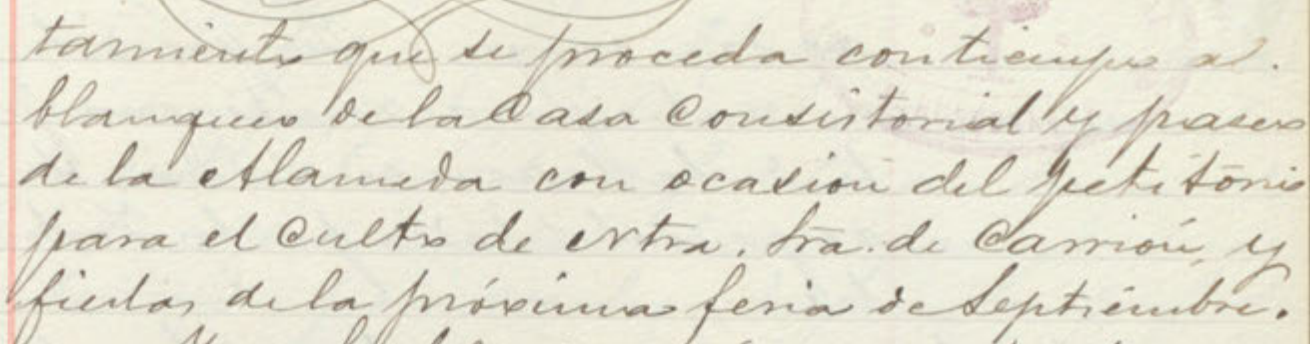 tamiento que se proceda con tiempo al
blanqueo de la Casa Consistorial y paseo
de la Alameda con ocasion del petitorio
para el Culto de Ntra. Sra. de Carrión, y
fiestas de la próxima feria de Septiembre.